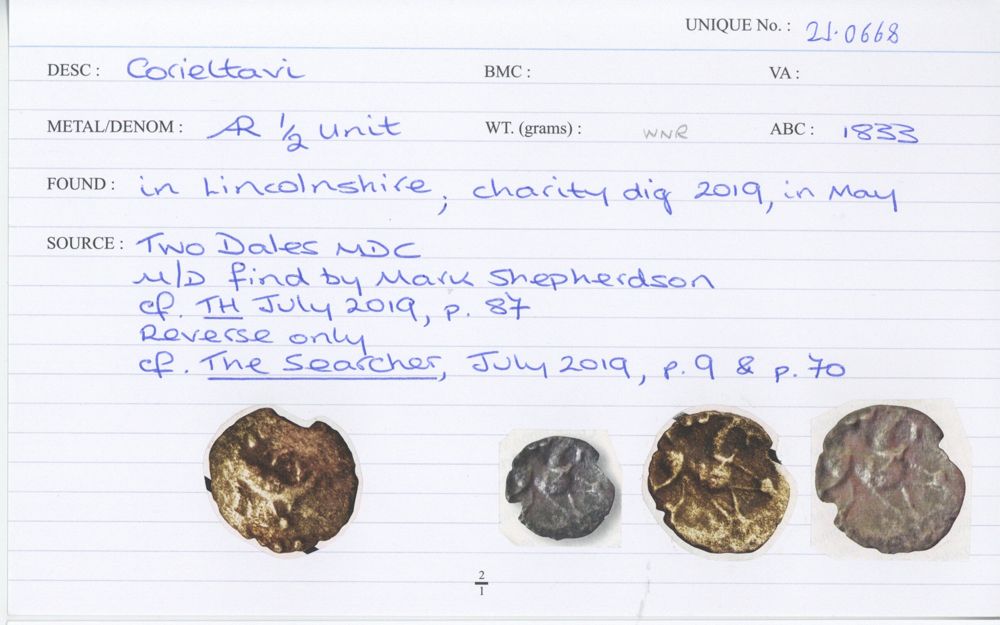 UNIQUE No. : 21.0668
DESC : Corieltavi BMC : VA :
METAL/DENOM : AR 1/2 unit WT. (grams) : WNR ABC : 1833
FOUND : in Lincolnshire, charity dig 2019, in May
SOURCE : Two Dales MDC
M/D find by Mark Shepherdson
cf. TH July 2019, p. 87
Reverse only
cf. The Searcher, July 2019, p. 9 & p. 70
2
1